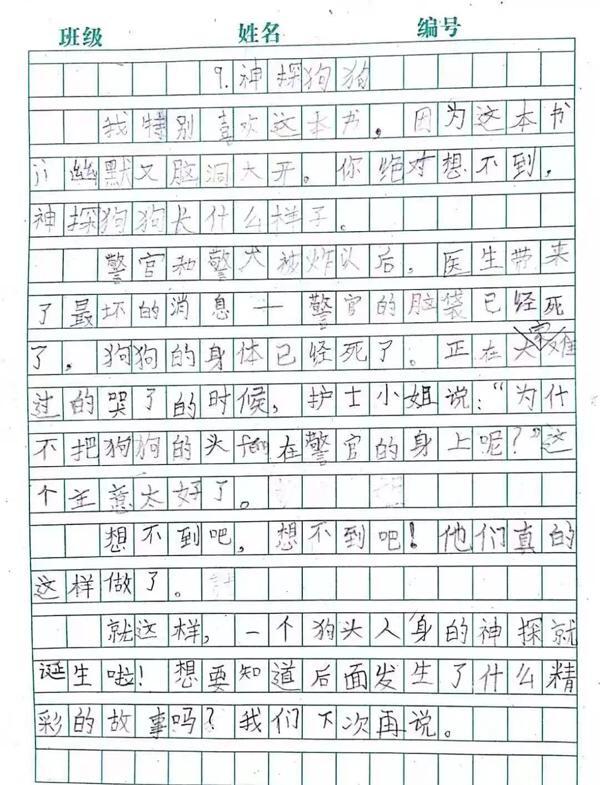 班级 姓名 编号
9.神探狗狗
我特别喜欢这本书。因为这本书
ji幽默又脑洞大开。你绝对想不到,
神探狗狗长什么样子。
警官和警犬被炸以后,医生带来
了最坏的消息—警官的脑袋已经死
了,狗狗的身体已经死了。正在大家难
过的哭了的时候,护士小姐说:“为什
不把狗狗的头feng在警官的身上呢?”这
个主意太好了。
想不到吧,想不到吧!他们真的
这样做了。
就这样,一个狗头人身的神探就
诞生啦!想要知道后面发生了什么精
彩的故事吗?我们下次再说。